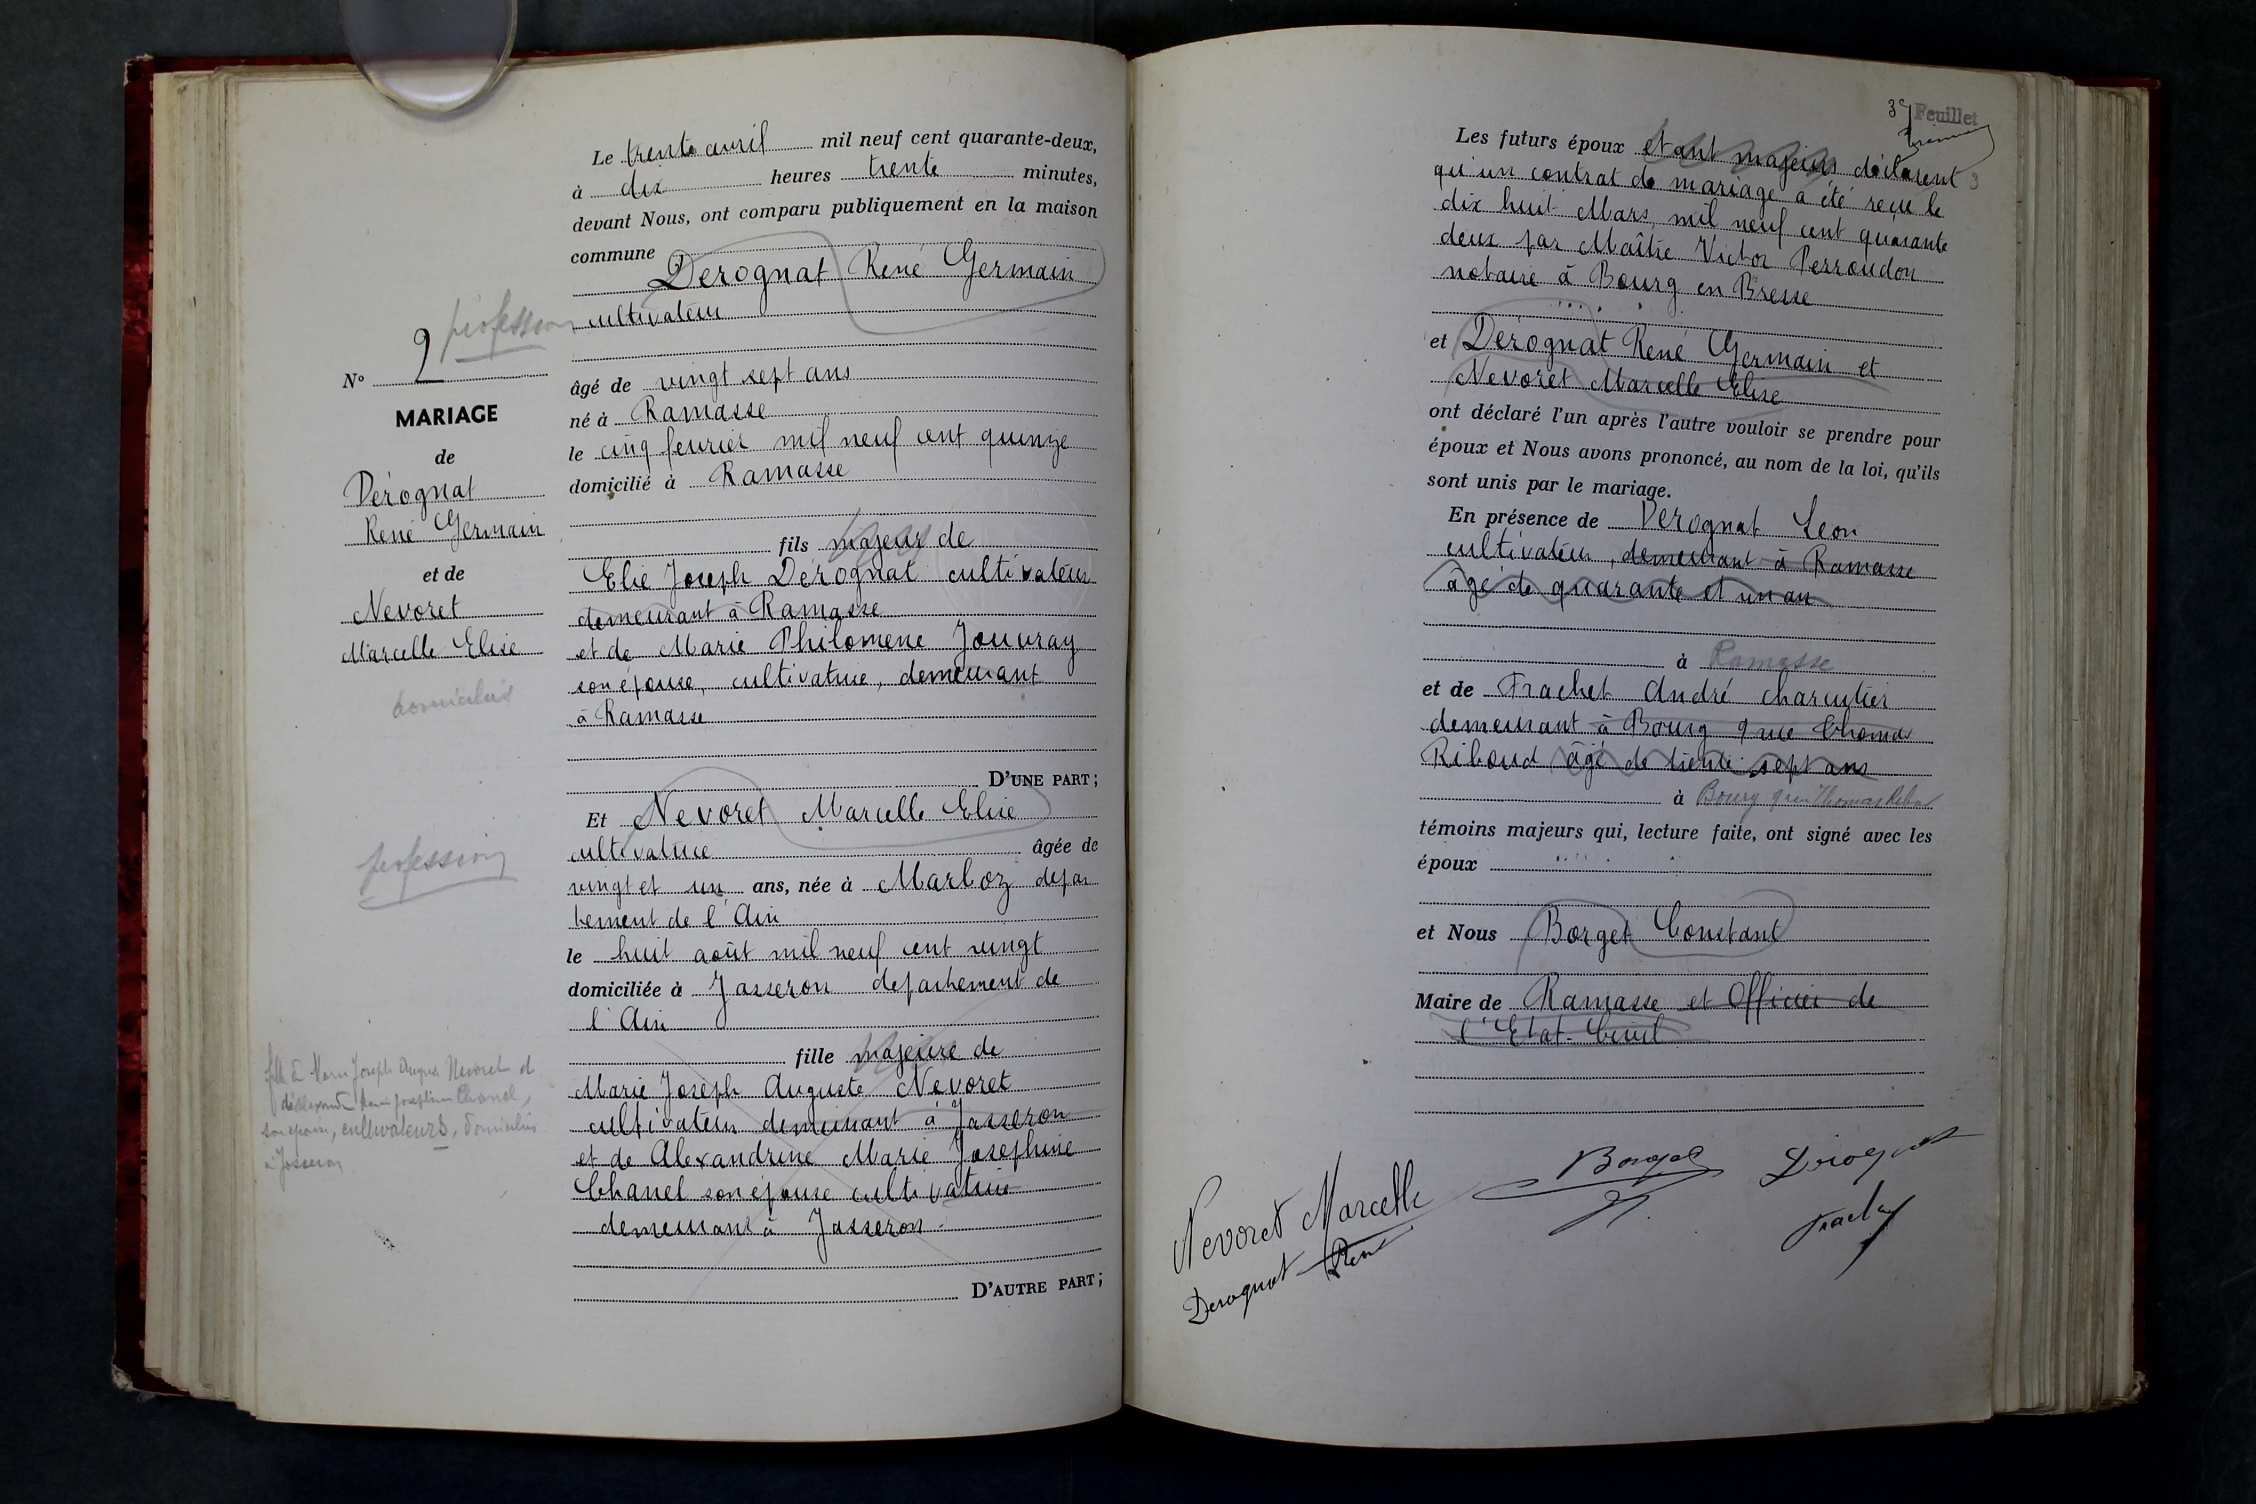 Le trente avril mil neuf cent quarante-deux,
à dix heures trente minutes,
devant Nous, ont comparu publiquement en la maison
commune
Dérognat René Germain
cultivateur
profession
N° 2
MARIAGE
de
Dérognat
René Germain
et de
Nevoret
Marcelle Elise
domiciliés
âgé de vingt sept ans
né à Ramasse
le cinq fevrier mil neuf cent quinze
domicilié à Ramasse
fils majeur de
Elie Joseph Dérognat cultivateur
demeurant à Ramasse
et de Marie Philomene Jouvray
son épouse, cultivatrice, demeurant
à Ramasse
D'UNE PART;
Et Nevoret Marcelle Elise
cultivatrice âgée de
profession
vingt et un ans, née à Marboz depar
tement de l'Ain
le huit août mil neuf cent vingt
domiciliée à Jasseron departement de
l'Ain
fille majeure de
Marie Joseph Auguste Nevoret
cultivateur demeurant à Jasseron
et de Alexandrine Marie Josephine
Chanel son épouse cultivatrice
demeurant à Jasseron.
D'AUTRE PART;
fille de Marie Joseph Auguste Nevoret et
de Alexandrine Marie Josephine Chanel,
son épouse, cultivateurs, domiciliés
à Jasseron
3e Feuillet
Les futurs époux étant majeurs déclarent
qu'un contrat de mariage a été reçu le
dix huit Mars mil neuf cent quarante
deux par Maître Victor Perroudon
notaire à Bourg en Bresse
et Dérognat René Germain et
Nevoret Marcelle Elise
ont déclaré l'un après l'autre vouloir se prendre pour
époux et Nous avons prononcé, au nom de la loi, qu'ils
sont unis par le mariage.
En présence de Dérognat Leon
cultivateur, demeurant à Ramasse
âgé de quarante et un an
à Ramasse
et de Frachet André charcutier
demeurant à Bourg 9 rue Thomas
Riboud âgé de trente sept ans
à Bourg 9 rue Thomas Riboud
témoins majeurs qui, lecture faite, ont signé avec les
époux
et Nous Borget Constant
Maire de Ramasse et Officier de
l'Etat-Civil
Nevoret Marcelle
Derognat René
Borget
Dérognat
Frachet